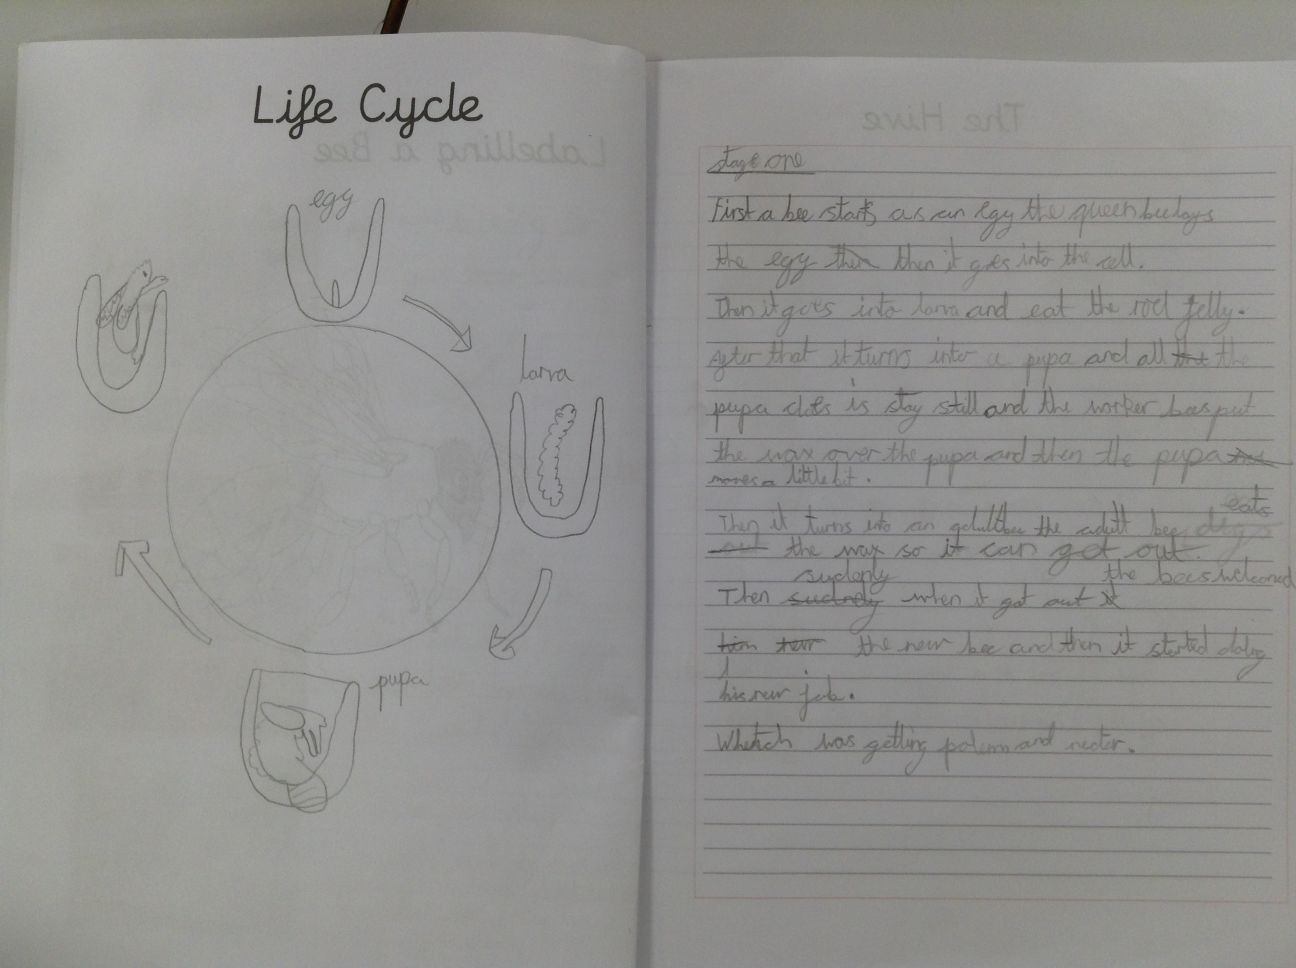 Life Cycle
Labelling a Bee
egg
larva
pupa
The Hive
stage one
First a bee starts as an egg the queen bee lays
the egg then then it goes into the cell.
Then it goes into larva and eat the roel jelly.
After that it turns into a pupa and all that the
pupa does is stay still and the worker bees put
the wax over the pupa and then the pupa
moves a little bit.
eats
Then it turns into an adult bee the adult bee digs
out the wax so it can get out
sudenly the bees welcomed
Then sudnely when it got out
him their the new bee and then it started doing
his new job.
Whetch was getting polenn and necter.